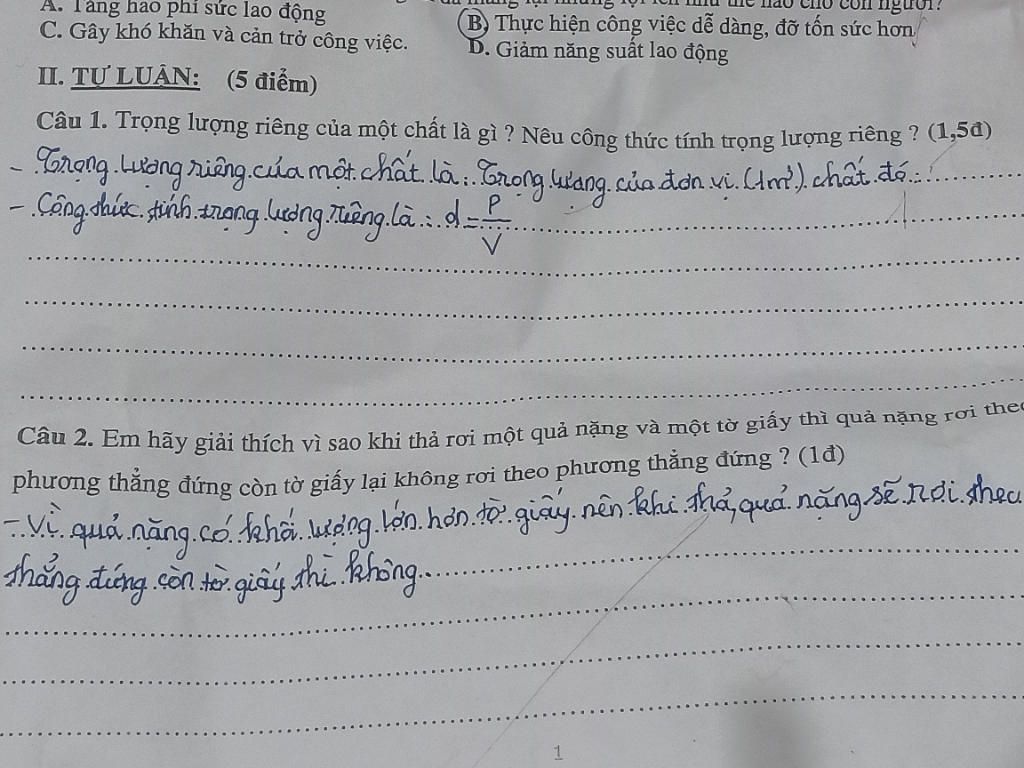 A. Tăng hao phí sức lao động
B. Thực hiện công việc dễ dàng, đỡ tốn sức hơn
C. Gây khó khăn và cản trở công việc.
D. Giảm năng suất lao động
II. TỰ LUẬN: (5 điểm)
Câu 1. Trọng lượng riêng của một chất là gì ? Nêu công thức tính trọng lượng riêng ? (1,5đ)
- Trọng lượng riêng của một chất là: Trọng lượng của đơn vị (1m³) chất đó.
- Công thức tính trọng lượng riêng là: d = P/V
Câu 2. Em hãy giải thích vì sao khi thả rơi một quả nặng và một tờ giấy thì quả nặng rơi theo
phương thẳng đứng còn tờ giấy lại không rơi theo phương thẳng đứng ? (1đ)
- Vì quả nặng có khối lượng lớn hơn tờ giấy nên khi thả, quả nặng sẽ rơi theo
thẳng đứng còn tờ giấy thì không.
1